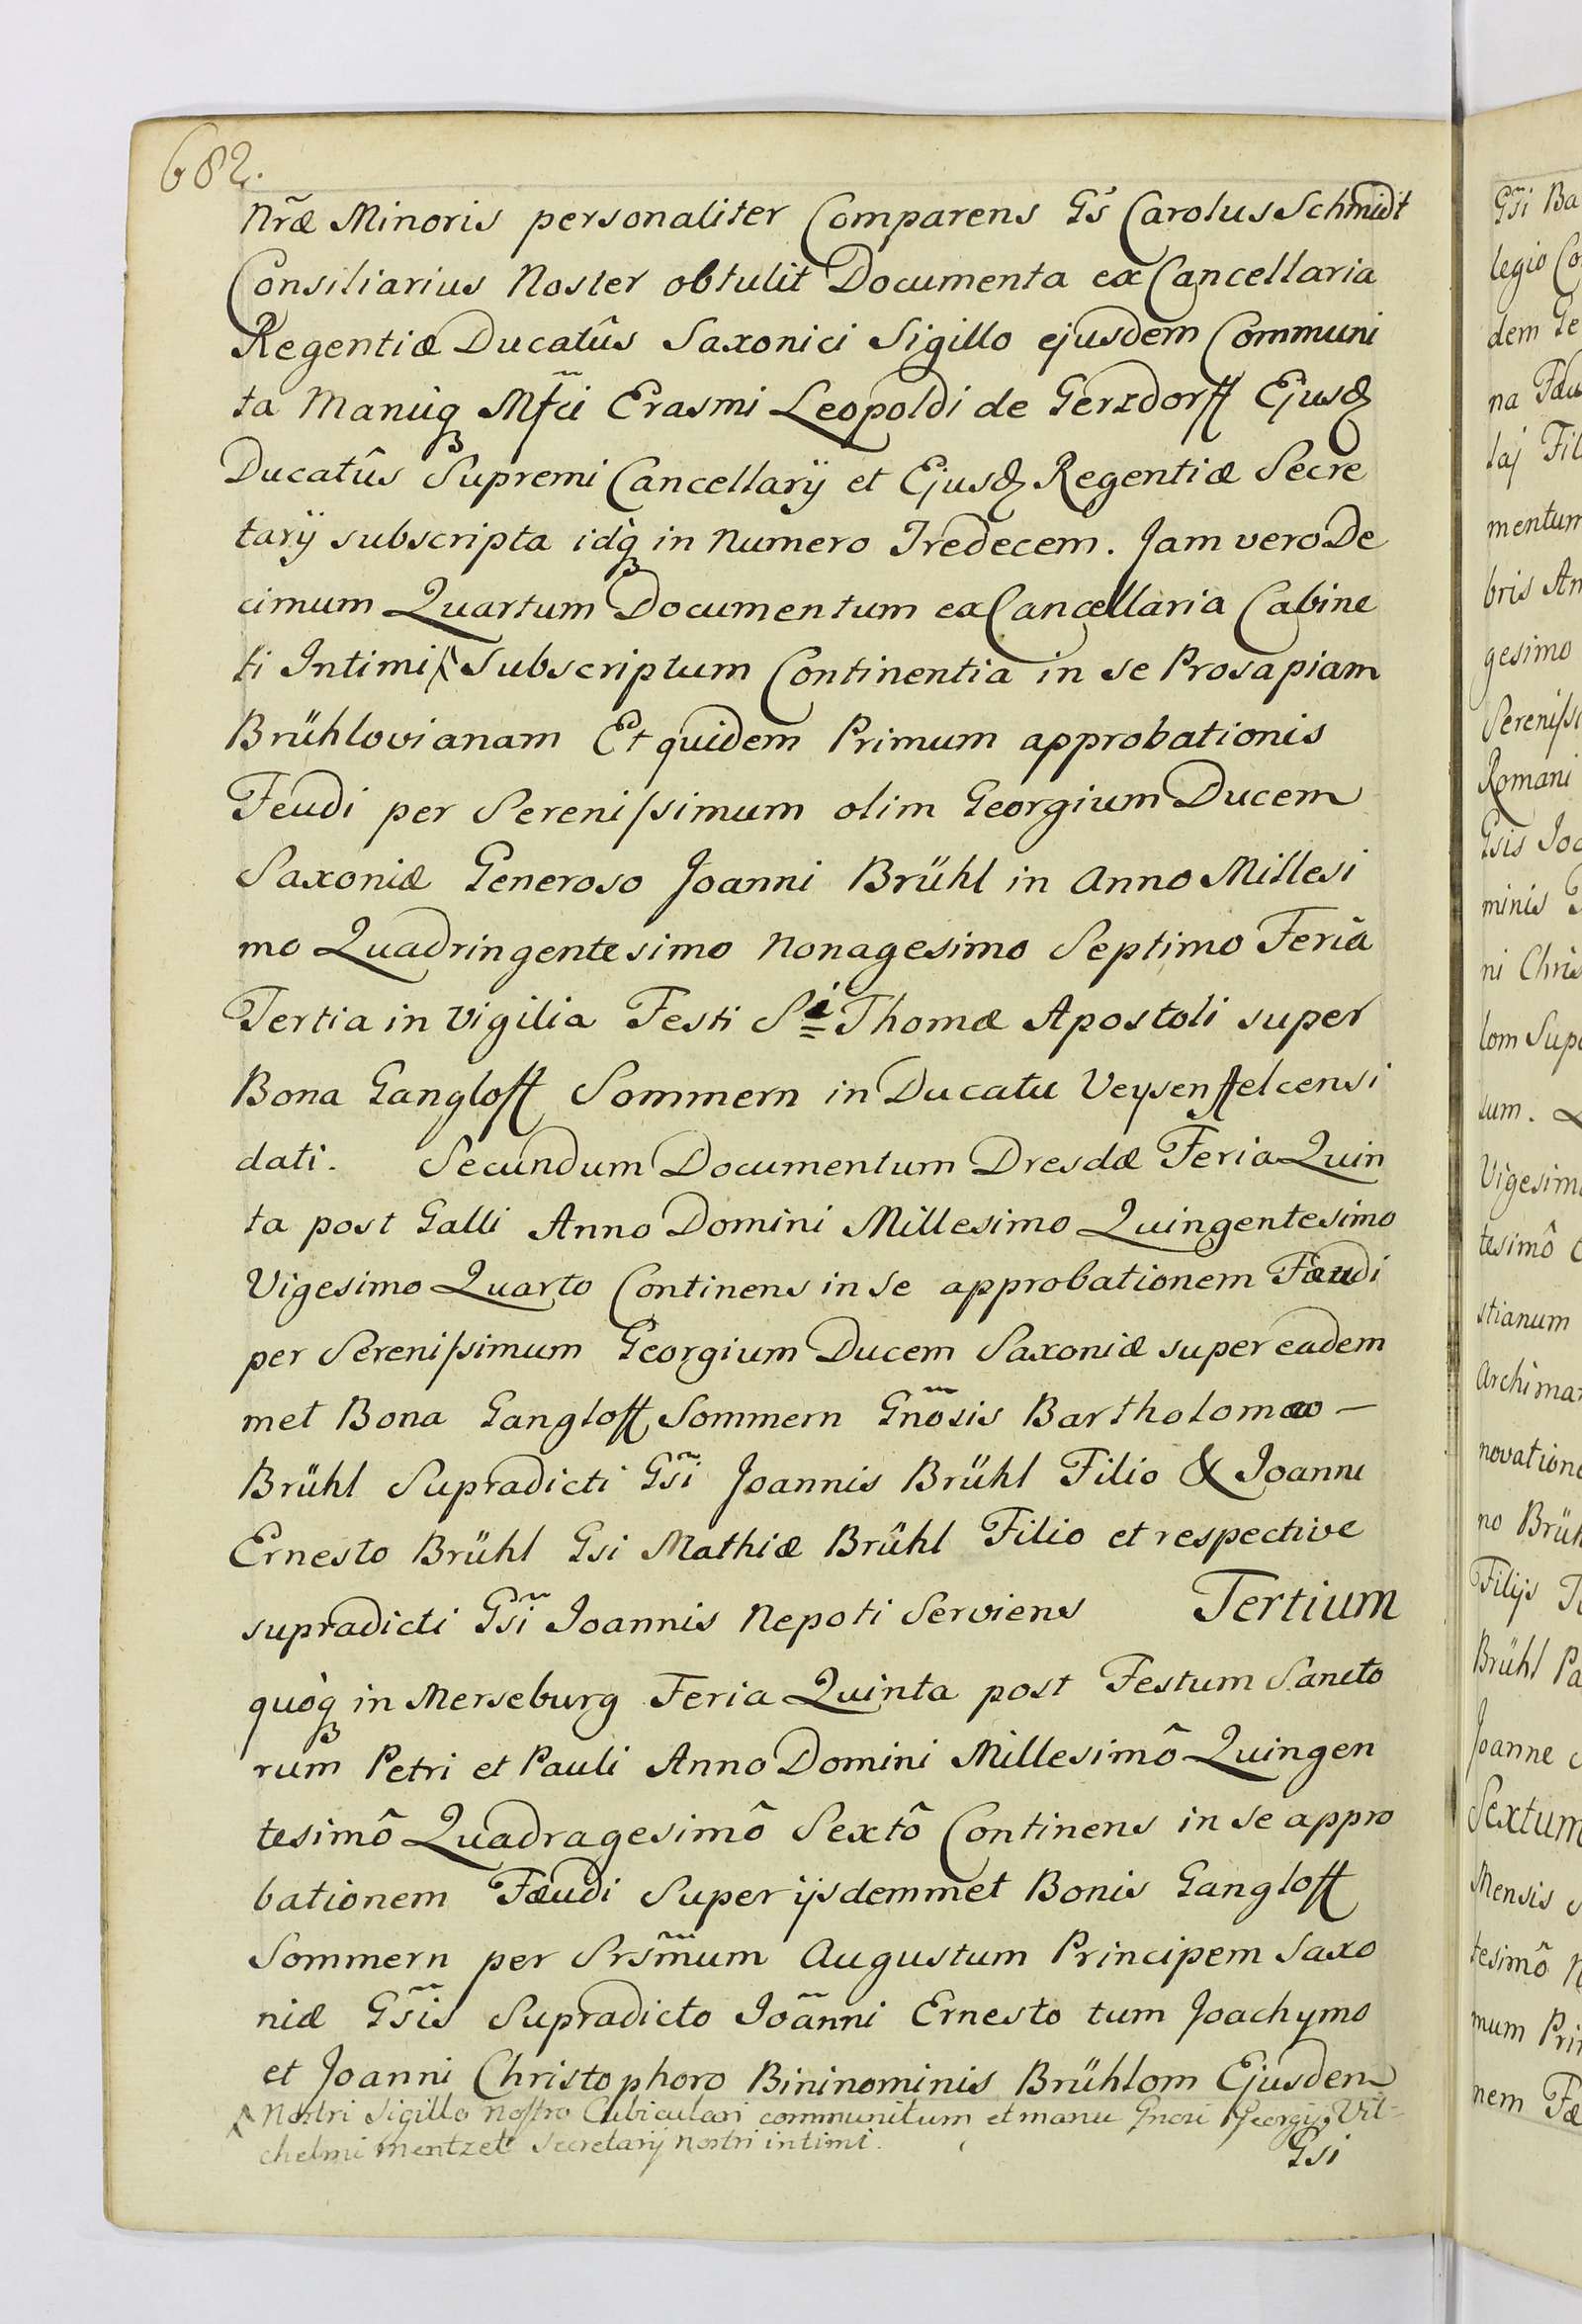 682.
Nr̃æ Minoris personaliter Comparens Gs̃ Carolus Schmidt
Consiliarius Noster obtulit Documenta ex Cancellaria
Regentiæ Ducatûs Saxonici Sigillo ejusdem Communi
ta Manuq̀ Mf̃ci Erasmi Leopoldi de Gerxdorff Ejusd
Ducatûs Supremi Cancellarij et Ejusd Regentiæ Secre
tarij subscripta idq̀ in Numero Tredecem. Jam vero De
cimum Quartum Documentum ex Cancellaria Cabine
ti Intimi Subscriptum Continentia in se Prosapiam
Brühlovianam Et quidem Primum approbationis
Feudi per Serenissimum olim Georgium Ducem
Saxoniæ Generoso Joanni Brühl in Anno Millesi
mo Quadringentesimo Nonagesimo Septimo Feriâ
Tertia in Vigilia Festi Si Thomæ Apostoli super
Bona Gangloff Sommern in Ducatu Veysenffelcensi
dati. Secundum Documentum Dresdæ Feria Quin
ta post Galli Anno Domini Millesimo Quingentesimo
Vigesimo Quarto Continens in se approbationem Fæudi
per Serenissimum Georgium Ducem Saxoniæ super eadem
met Bona Gangloff Sommern Gñosis Bartholomæo —
Brühl Supradicti Gs̃i Joannis Brühl Filio & Joanni
Ernesto Brühl Gsi Mathiæ Brühl Filio et respective
supradicti Gs̃i Joannis Nepoti Serviens Tertium
quoq̀ in Merseburg Feria Quinta post Festum Sancto
rum Petri et Pauli Anno Domini Millesimô Quingen
tesimô Quadragesimô Sextô Continens in se appro
bationem Fæudi Super ijsdemmet Bonis Gangloff
Sommern per Srs̃mum Augustum Principem Saxo
niæ Gs̃is Supradicto Joãnni Ernesto tum Joachymo
et Joanni Christophoro Bininominis Brühlom Ejusdem
Nostri Sigillo Nostro Cubiculari communitum et manu Gnosi Georgij Vil-
chelmi Mentzel Secretarij Nostri intimi.
Gsi
Gs̃i Ba
legio Co
dem Ge
na Fæu
laj Fil
mentum
bris An
gesimo
Sereniss
Romani
Gsis Joa
minis
ni Chris
lom Supe
sum.
Vigesim
tesimô
stianum
Archimar
novatione
no Brüh
Filijs
Brühl Pa
Joanne
Sextum
Mensis
tesimô N
mum Pri
nem Fæ